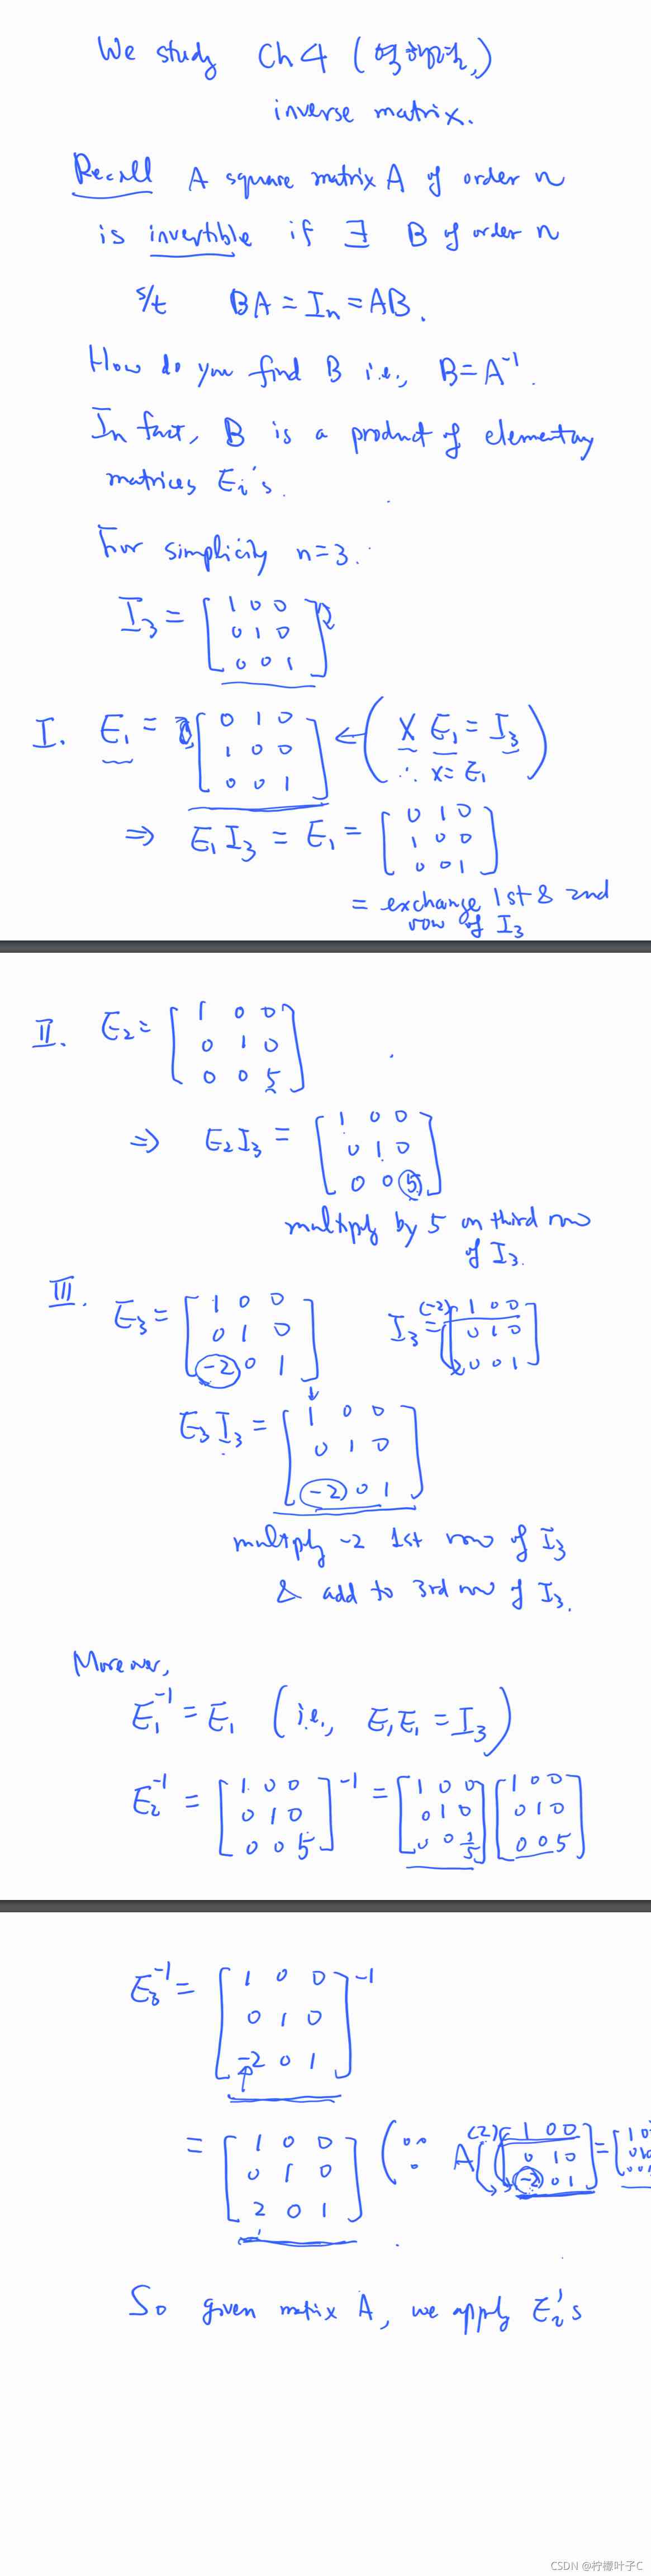 We study Ch 4 (역행렬,)
inverse matrix.
Recall A square matrix A of order n
is invertible if ∃ B of order n
s/t BA = In = AB.
How do you find B i.e., B = A⁻¹.
In fact, B is a product of elementary
matrices Ei's.
For simplicity n = 3.
I₃ = [1 0 0
0 1 0
0 0 1]
I. E₁ = [0 1 0
1 0 0
0 0 1] ← (X E₁ = I₃
∴ X = E₁)
⇒ E₁I₃ = E₁ = [0 1 0
1 0 0
0 0 1]
= exchange 1st & 2nd
row of I₃
II. E₂ = [1 0 0
0 1 0
0 0 5]
⇒ E₂I₃ = [1 0 0
0 1 0
0 0 5]
multiply by 5 on third row
of I₃.
III. E₃ = [1 0 0
0 1 0
-2 0 1]
I₃ = (-2) [1 0 0
0 1 0
0 0 1]
E₃I₃ = [1 0 0
0 1 0
-2 0 1]
multiply -2 1st row of I₃
& add to 3rd row of I₃.
Moreover,
E₁⁻¹ = E₁ (i.e., E₁E₁ = I₃)
E₂⁻¹ = [1 0 0
0 1 0
0 0 5]⁻¹ = [1 0 0
0 1 0
0 0 1/5] [1 0 0
0 1 0
0 0 5]
E₃⁻¹ = [1 0 0
0 1 0
-2 0 1]⁻¹
= [1 0 0
0 1 0
2 0 1] (∵ A (2) [1 0 0
0 1 0
-2 0 1] = [1 0
0 1 0
0 0 1
So given matrix A, we apply Ei's
CSDN @柠檬叶子C